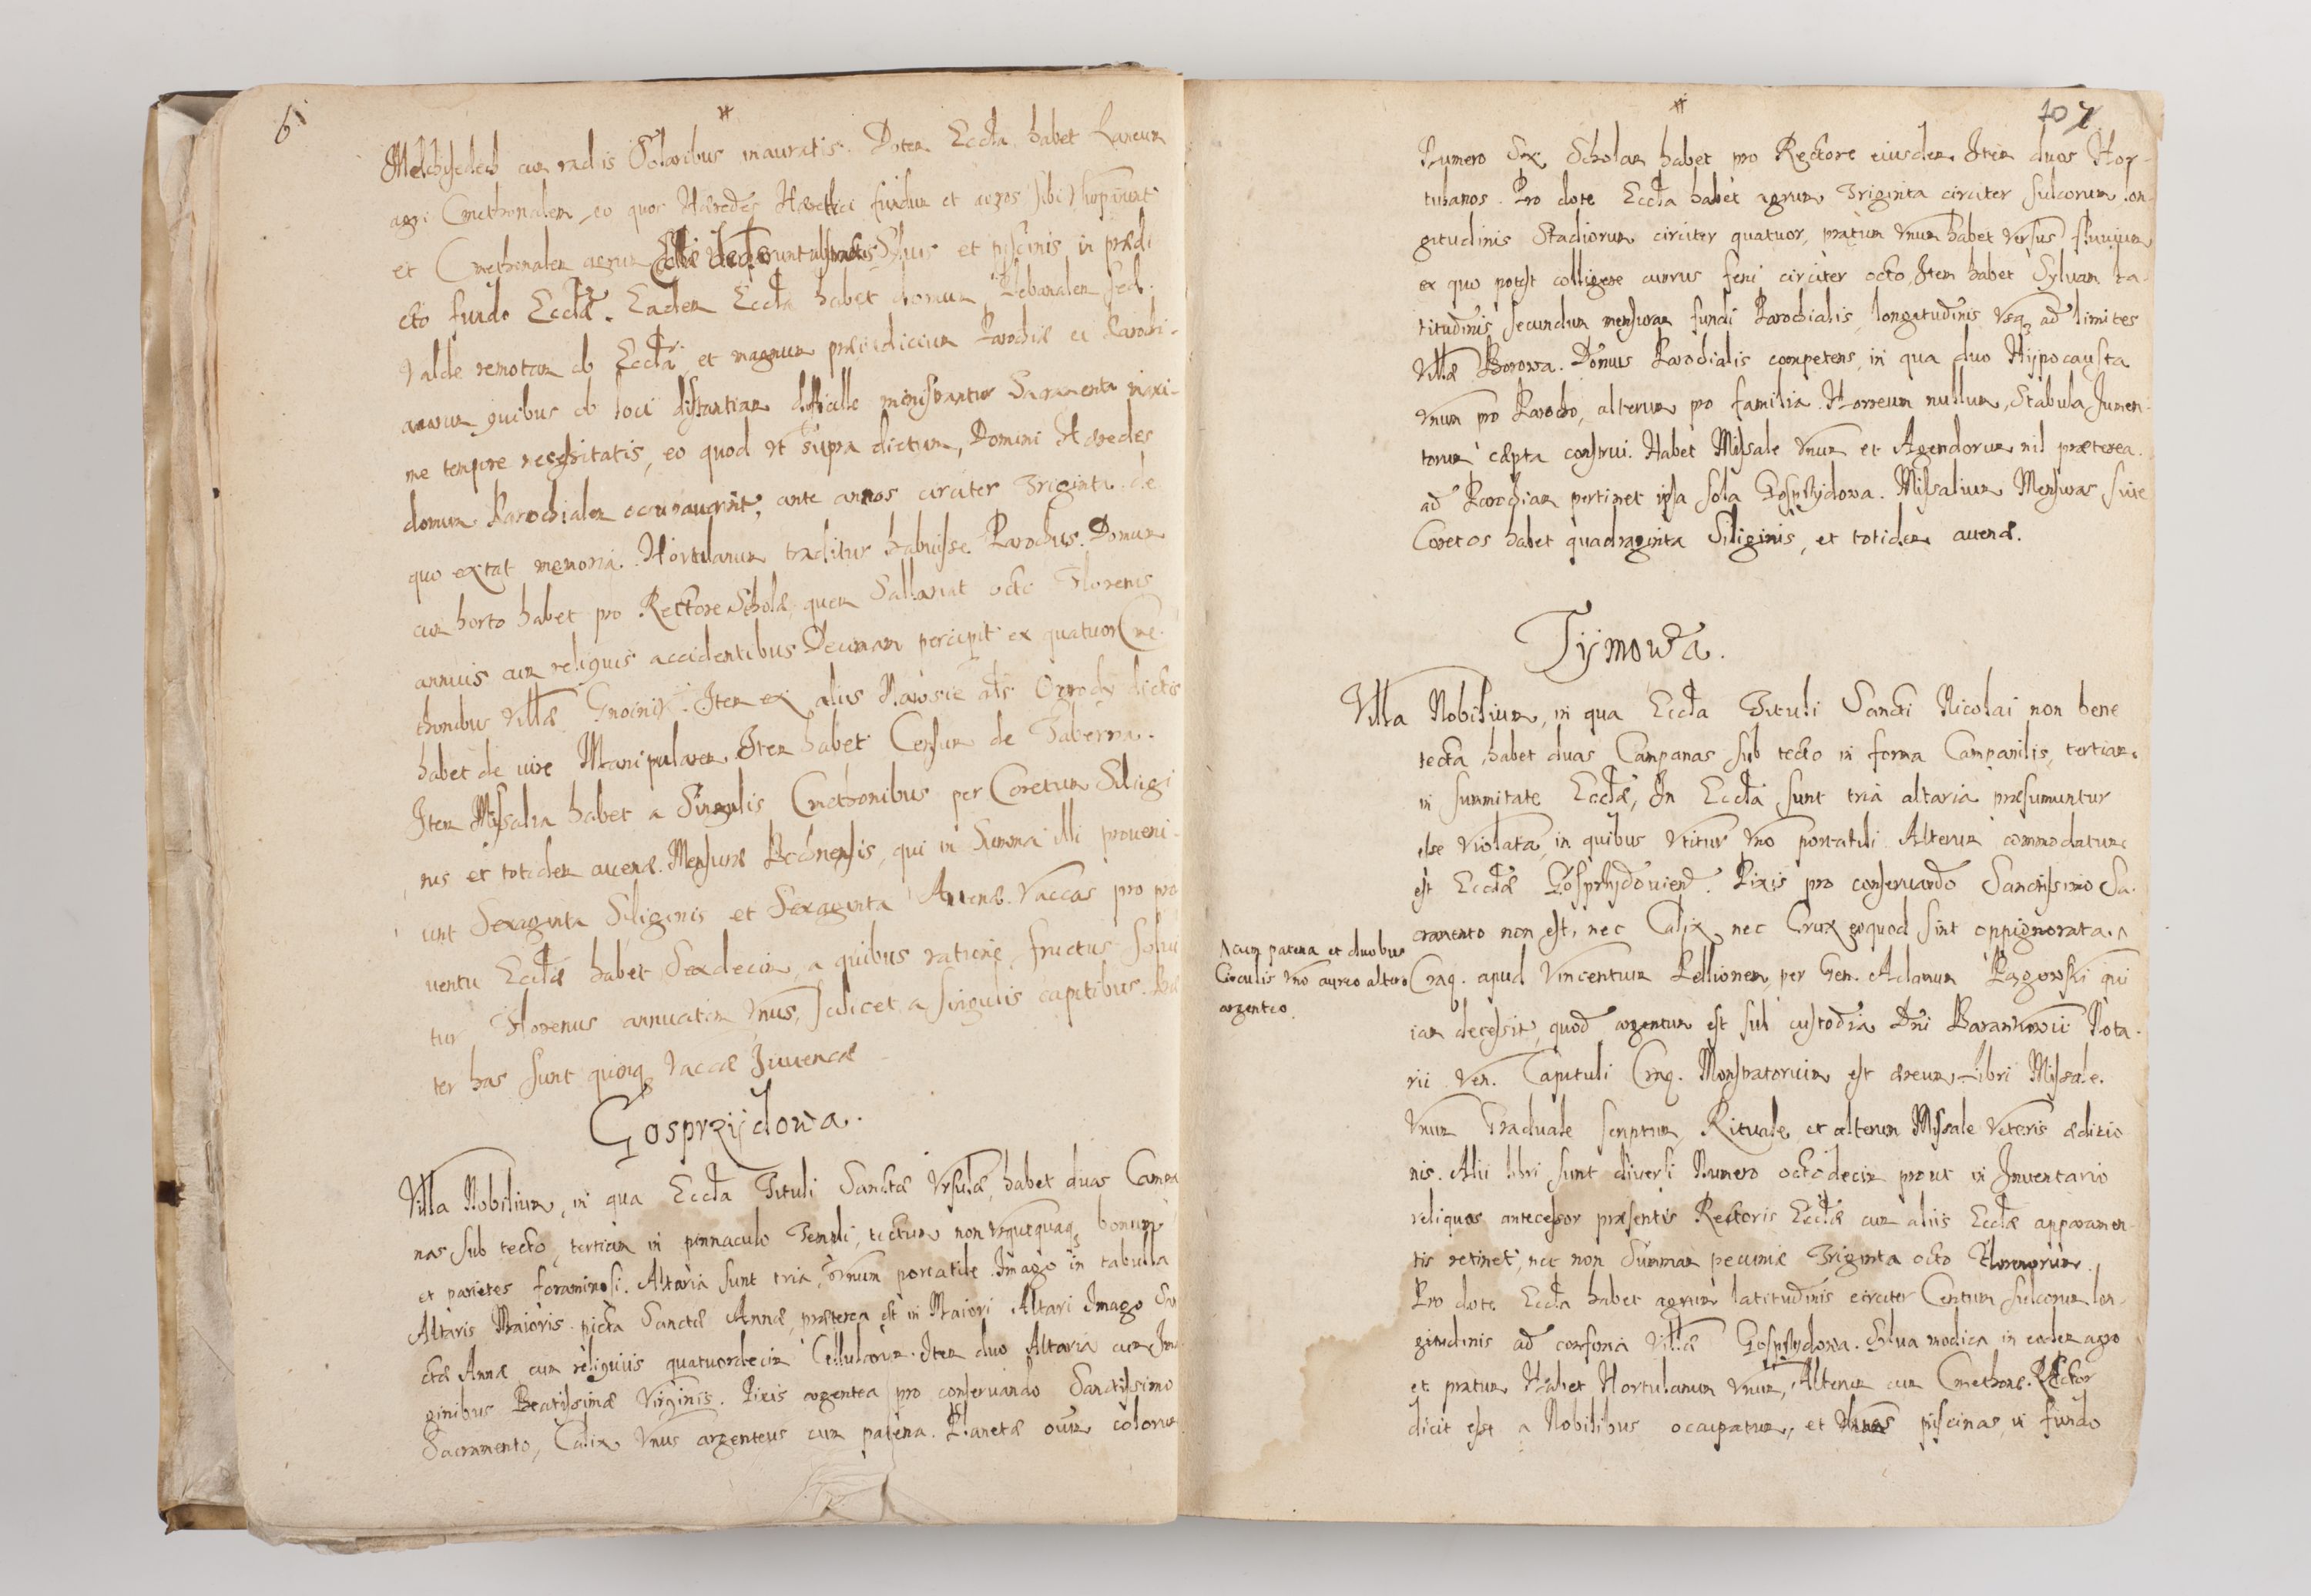 6
Melchisedech cum radiis Solaribus inauratis. Dotem Eccła habet Laneum
agri Cmethonalem, eo quod Hæredes Hæretici fundum et agros sibi usurparunt
et Cmethonalem agrum Ecclæ dederunt et piscinis in prædi
cto fundo Ecclæ. Eadem Eccła habet domum Plebanalem sed
valde remotam ab Eccła, et magnum præiudicium Parochiæ et Parochi-
anorum quibus ob loci distantiam difficile ministrantur Sacramenta maxi-
me tempore necessitatis, eo quod ut supra dictum, Domini Hæredes
domum Parochialem occupauerunt, ante annos circiter Triginta de
quo extat memoria. Hortulanum traditur habuisse Parochus. Domum
cum horto habet pro Rectore Scholæ, quem Sallariat octo Florenis
annuis cum reliquis accidentibus Decimam percipit ex quatuor Cme-
thonibus Villæ Gnoinik. Item ex alius Nawsie als Ogrody dictis
habet de iure Manipularem. Item habet Censum de Taberna.
Item Missalia habet a Singulis Cmethonibus per Coretum Siligi
nis et totidem auenæ. Mensuræ Bochnensis, qui in Summa illi proueni-
unt Sexaginta Siliginis et Sexaginta Auenæ. Vaccas pro pro
uentu Ecclæ habet Sexdecim, a quibus ratione fructus Solui
tur Florenus annuatim Vnus, scilicet a singulis capitibus. Præ
ter has sunt quinq3 Vaccæ Juuencæ
Gosprzijdowa.
Villa Nobilium, in qua Eccła Tituli Sanctæ Vrsulæ, habet duas Campa
nas sub tecto, tertiam in pinnaculo Templi, tectum non vsquequaq3 bonum
et parietes foraminosi. Altaria sunt tria, Vnum portatile Imago in tabulla
Altaris Maioris picta Sanctæ Annæ, præterea est in Maiori Altari Imago San
ctæ Annæ cum reliquiis quatuordecim Cellularum. Item duo Altaria cum Ima
ginibus Beatissimæ Virginis. Pixis argentea pro conseruando Sanctissimo
Sacramento, Calix Vnus argenteus cum patena. Planetæ colorum
107
Numero Sex Scholam habet pro Rectore eiusdem. Item duos Hor-
tulanos. Pro dote Eccła habet agrum Triginta circiter sulcorum lon-
gitudinis Stadiorum circiter quatuor, pratum Vnum habet versus fluuium
ex quo potest colligere currus feni circiter octo, Item habet Syluam la-
titudinis secundum mensuram fundi Parochialis, longitudinis vsq3 ad limites
Villæ Borowa. Domus Parochialis competens, in qua duo Hijpocausta
Vnum pro Parocho, alterum pro familia. Horreum nullum, Stabula Jumen-
torum cæpta construi. Habet Missale Vnum et Agendorum nil præterea.
ad Parochiam pertinet ipsa sola Gosprzydowa. Missalium Mensuras siue
Coretos habet quadraginta Siliginis, et totidem auenæ.
Tijmowa.
Villa Nobilium, in qua Eccła Tituli Sancti Nicolai non bene
tecta, habet duas Campanas sub tecto in forma Campanilis, tertiam
in summitate Ecclæ, In Eccła sunt tria altaria præsumuntur
esse violata, in quibus vtitur Vno portatili Alterum commodatum
est Ecclæ Gosprzydouien. Pixis pro conseruando Sanctissimo Sa-
cramento non est, nec Calix, nec Crux eo quod sint oppignorata.^
^cum patena et duobus
Circulis Vno aureo altero
argenteo.
Craq. apud Vincentium Pellionem, per Gen. Adamum Rogowski qui
iam decessit, quod argentum est sub custodia Dni Barankowii Nota-
rii Ven. Capituli Craq. Monstratorium est æreum Libri Missale.
Vnum Graduale scriptum, Rituale, et alterum Missale Veteris æditio
nis. Alii libri sunt diuersi Numero octodecim prout in Inuentario
reliquos antecessor præsentis Rectoris Ecclæ cum aliis Ecclæ apparamen-
tis retinet, nec non Summam pecuniæ Triginta octo Florenorum.
Pro dote Eccła habet agrum latitudinis circiter Centum sulcorum lon-
gitudinis ad confinia Villæ Gosprzydowa. Silua modica in eodem agro
et pratum Habet Hortulanum Vnum, Alterum cum Cmethone. Rector
dicit esse a Nobilibus occupatum, et piscinas in fundo